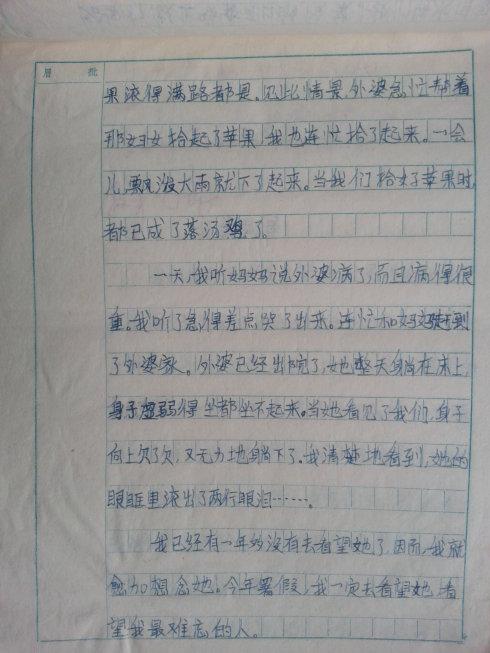 眉 批
果滚得满路都是。见此情景,外婆急忙帮着
那妇女拾起了苹果,我也连忙拾了起来。一会
儿,瓢泼大雨就下了起来。当我们拾好苹果时,
都已成了落汤鸡了。
一天,我听妈妈说外婆病了,而且病得很
重。我听了急得差点哭了出来。连忙和妈妈赶到
了外婆家。外婆已经出院了,她整天躺在床上,
身子虚弱得坐都坐不起来。当她看见了我们,身子
向上欠了欠,又无力地躺下了。我清楚地看到,她的
眼眶里滚出了两行眼泪……。
我已经有一年多没有去看望她了,因而,我就
愈加想念她。今年暑假,我一定去看望她,看
望我最难忘的人。